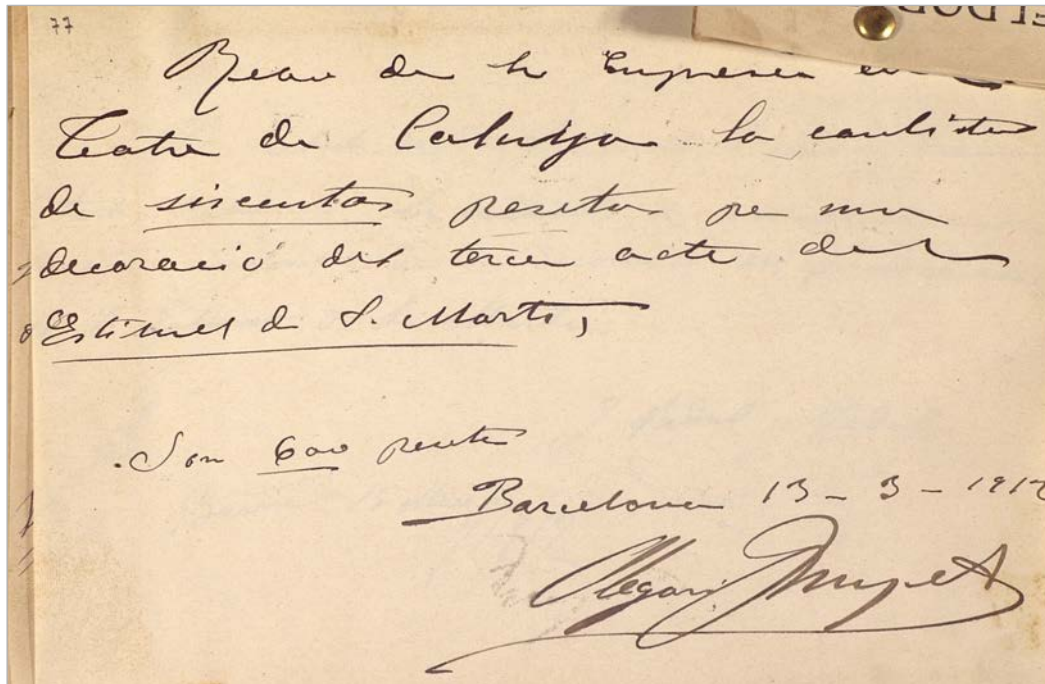 77
ELDOR
de la Empresa
Teatre de Catalunya la cantitat
de siscentas pesetas per una
decoració del tercer acte del
Estiuet de S. Martí,
Son 600 pesetas
Barcelona 13-3-191
Olegari Junyent